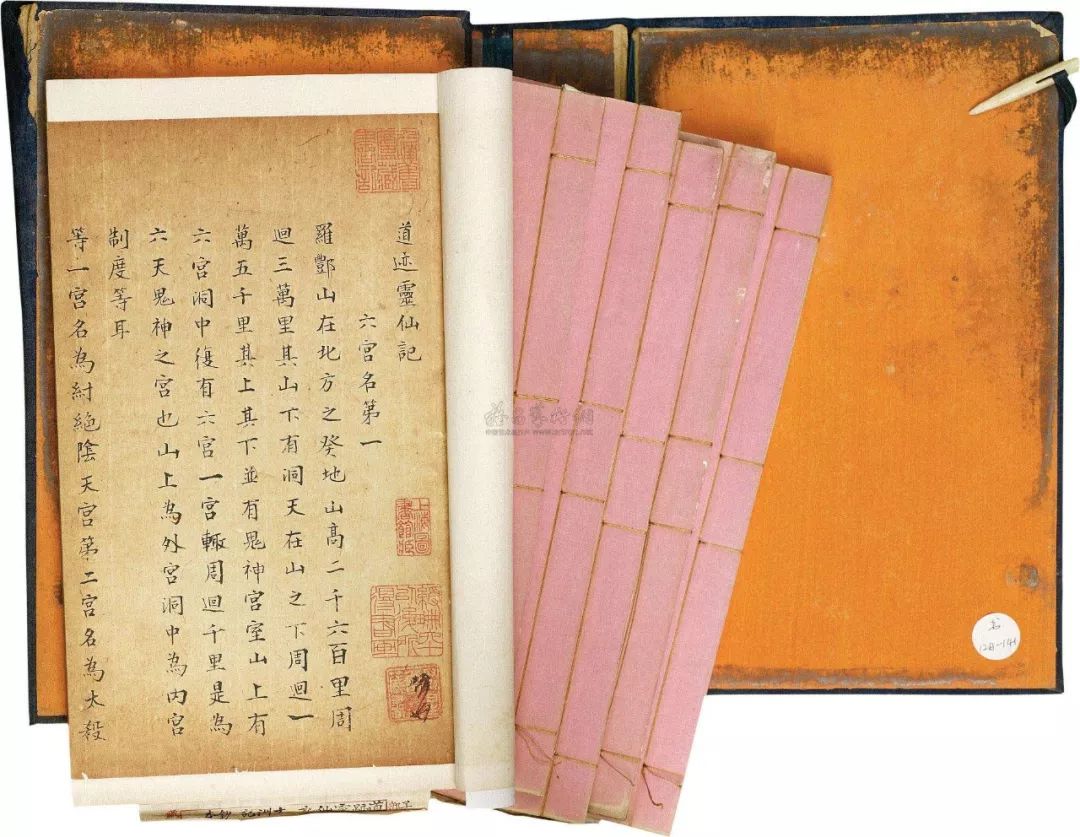 道迹靈仙記
六宮名第一
羅酆山在北方之癸地山髙二千六百里周
迴三萬里其山下有洞天在山之下周迴一
萬五千里其上其下並有鬼神宮室山上有
六宮洞中復有六宮一宮輙周迴千里是為
六天鬼神之宮也山上為外宮洞中為內宮
制度等耳
苐一宮名為紂絶陰天宮苐二宮名為太殺
上海圖
書館藏